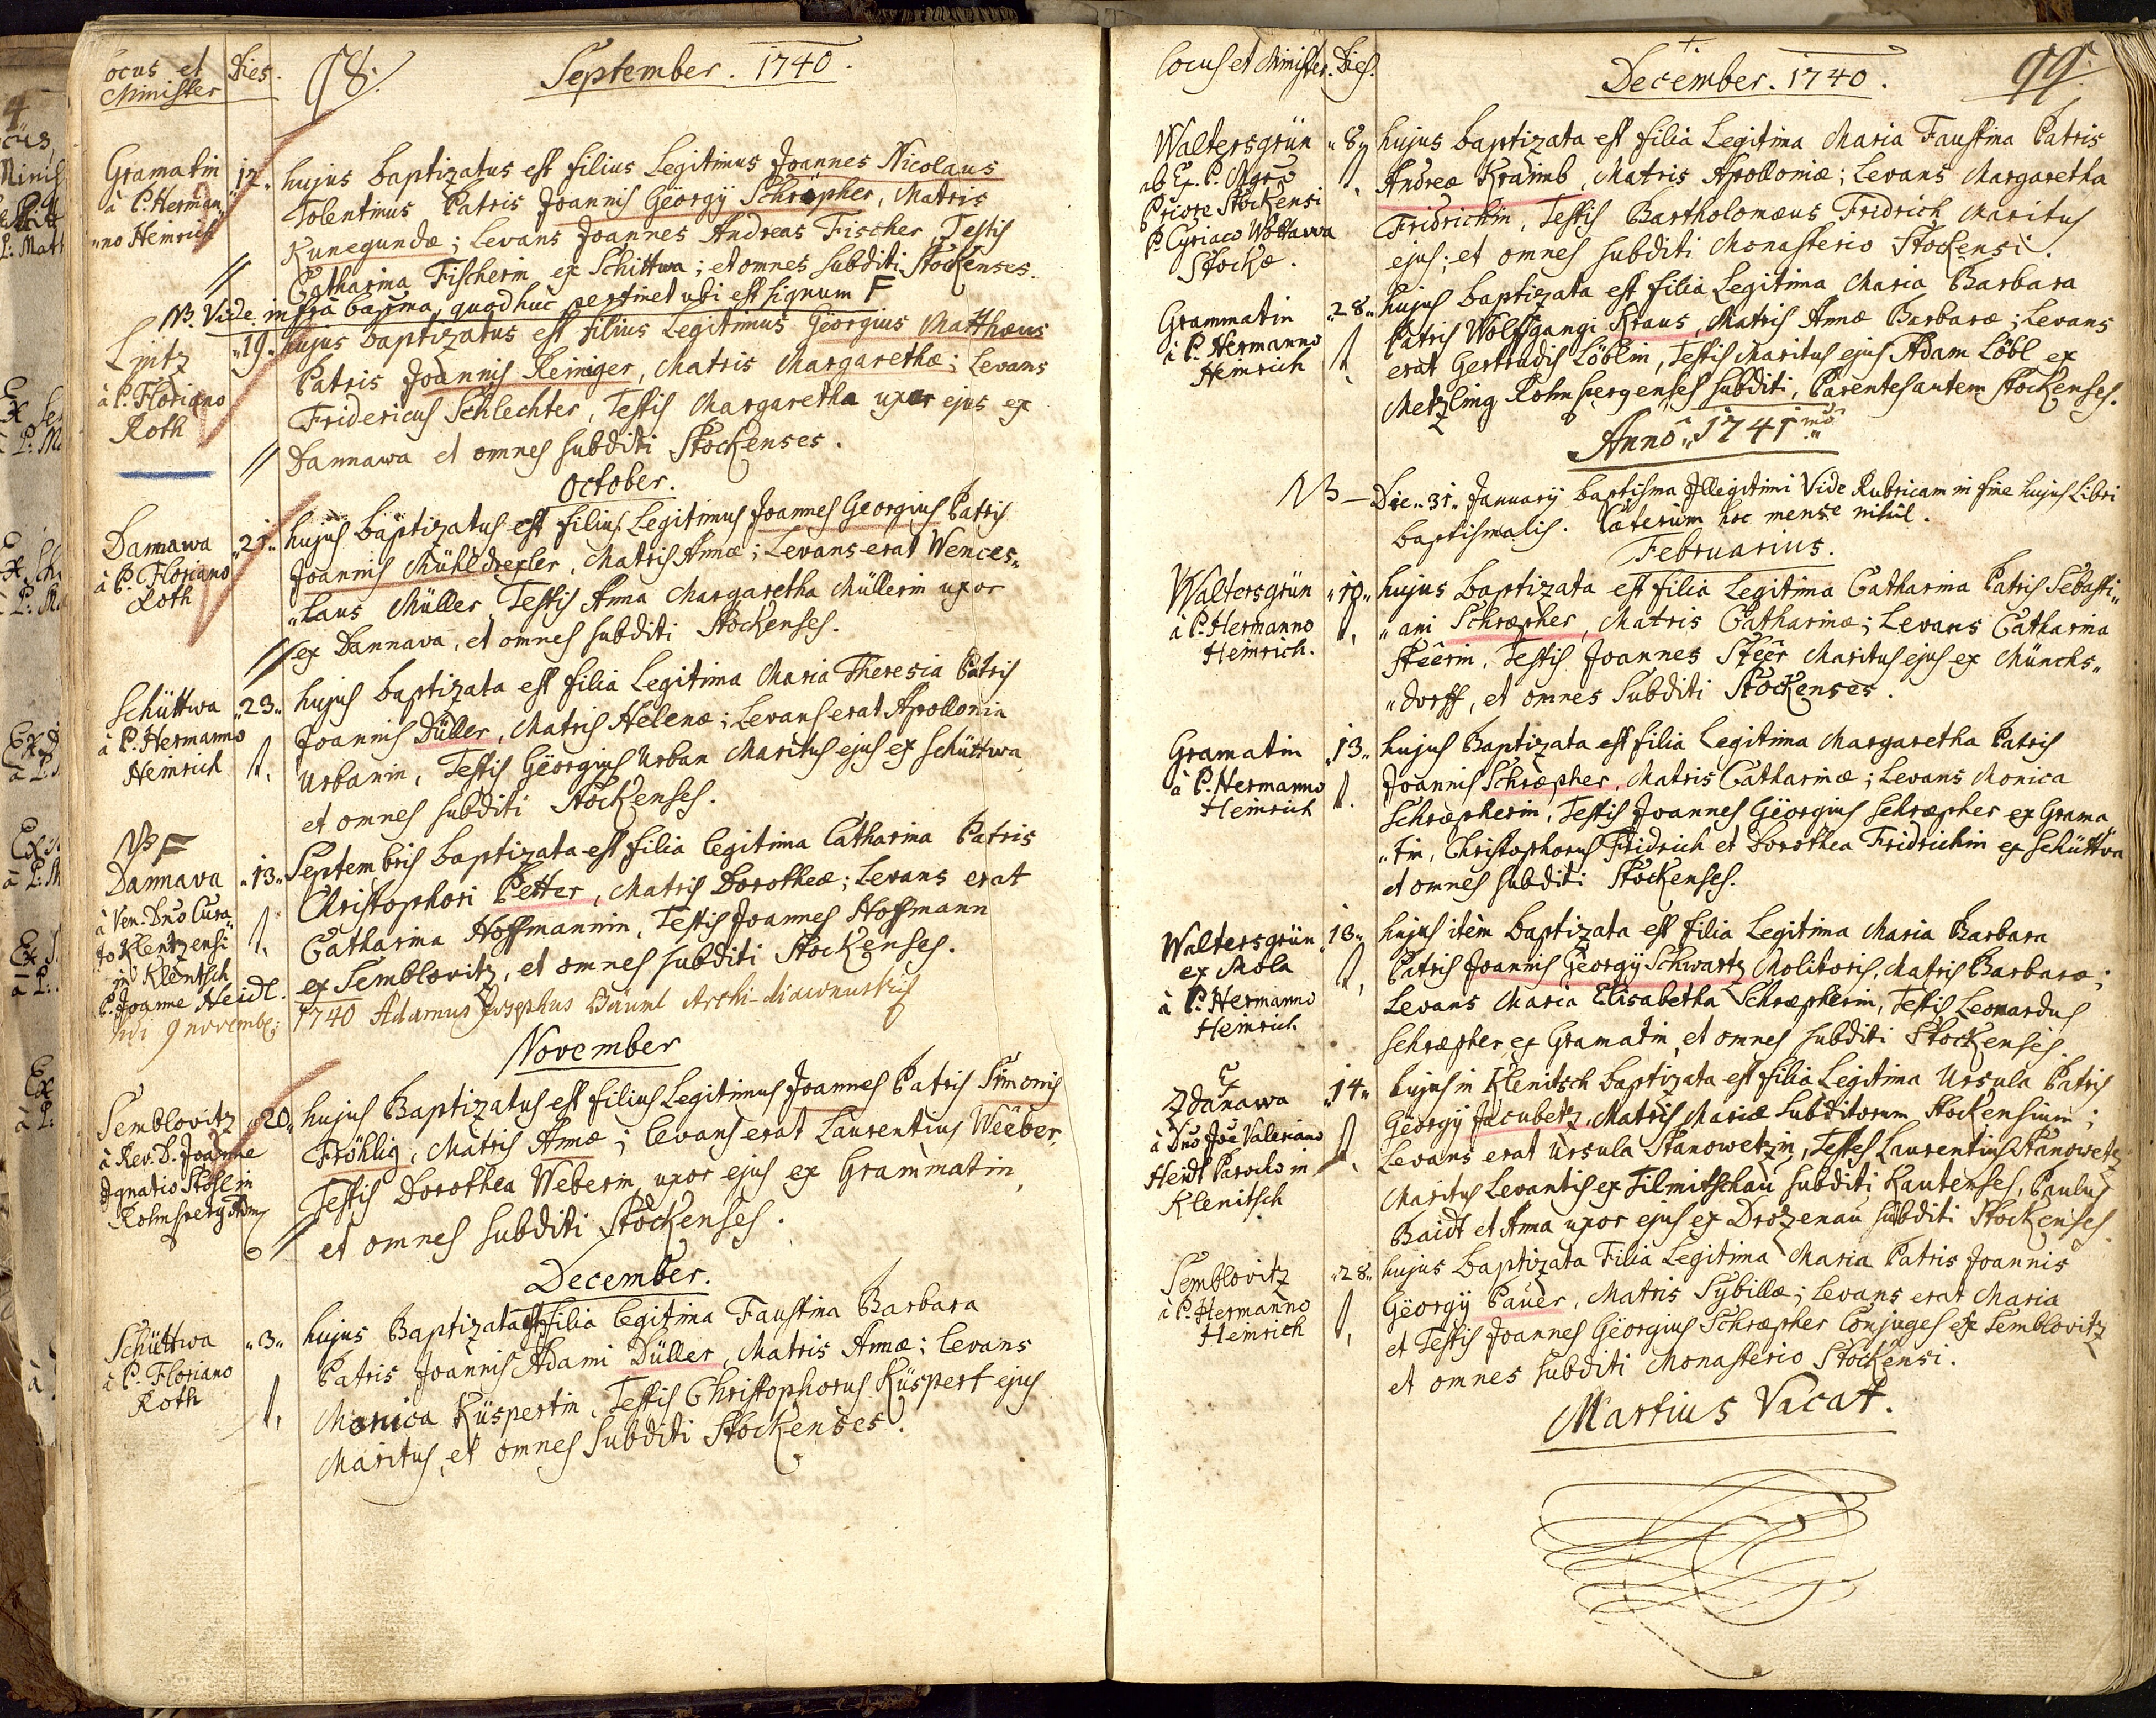 Locus et Minister
Dies.
98.
September. 1740.
Gramatin
à P. Herman„
„no Heinrich
„12„
hujus baptizatus est filius Legitimus Joannes Nicolaus
Tolentinus Patris Joannis Geörgÿ Schröpher, Matris
Kunegundæ; Levans Joannes Andreas Fischer, Testis
Catharina Fischerin ex Schittwa; et omnes subditi Stockenses.
NB. Vide infra bapma, quod huc pertinet ubi est signum F
Lintz
à P. Floriano
Roth
„19„
hujus baptizatus est filius Legitimus Geörgius Matthæus
Patris Joannis Reiniger, Matris Margarethæ; Levans
Fridericus Schlechter, Testis Margaretha uxor ejus ex
Dannawa et omnes subditi Stockenses.
October.
Dannawa
à P. Floriano
Roth
„21„
hujus baptizatus est filius Legitimus Joannes Georgius Patris
Joannis Mühldrexler, Matris Annæ; Levans erat Wences„
„laus Müller, Testis Anna Margaretha Müllerin uxor
ex Dannava, et omnes subditi Stockenses.
Schüttwa
à P. Hermanno
Heinrich
„23„
hujus baptizata est filia Legitima Maria Theresia Patris
Joannis Düller, Matris Helenæ; Levans erat Apollonia
Urbanin, Testis Geörgius Urban Maritus ejus ex Schüttwa,
et omnes subditi Stockenses.
NB F
Dannava
à Ven. Dno Cura„
to Klentzensi
in Klentsch
P. Joanne Heidl.
„13„
Septembris baptizata est filia legitima Catharina Patris
Christophori Petter, Matris Dorotheæ; Levans erat
Catharina Hoffmannin, Testis Joannes Hoffmann
ex Semblovitz, et omnes subditi Stockenses.
vidi 9 novemb:
1740 Adamus Josephus Bäuml Archi-diaconus
November
Semblovitz
à Rev. D. Joanne
Ignatio Stohl in
Rohnsperg
„20„
hujus Baptizatus est filius Legitimus Joannes Patris Simonis
Fröhlig, Matris Annæ; levans erat Laurentius Weëber,
Testis Dorothea Weberin, uxor ejus ex Grammatin,
et omnes subditi Stockenses.
December.
Schüttwa
à P. Floriano
Roth
„3„
hujus Baptizata est filia legitima Faustina Barbara
Patris Joannis Adami Düller, Matris Annæ; levans
Monica Küspertin, Testis Christophorus Küspert ejus
Maritus, et omnes subditi Stockenses.
Locus et Minister. Dies.
December. 1740.
99.
Waltersgrün
ab Ex. P. Mgro
Priore Stockensi
P. Cyriaco Wottawa
Stockæ.
„8„
hujus baptizata est filia Legitima Maria Faustina Patris
Andreæ Kraimb, Matris Apolloniæ; Levans Margaretha
Fridrichin, Testis Bartholomæus Fridrich Maritus
ejus; et omnes subditi Monasterio Stockensi.
Grammatin
à P. Hermanno
Heinrich
„28„
hujus baptizata est filia Legitima Maria Barbara
Patris Wolffgangi Kraus, Matris Annæ Barbaræ; Levans
erat Gertrudis Löblin, Testis Maritus ejus Adam Löbl ex
Metzling Rohnspergenses subditi, Parentes autem Stockenses.
Anno „1741„mo
NB — Die „31„ Januarÿ baptisma Illegitimi Vide Rubricam in fine hujus Libri
baptismalis. Cæterum hoc mense nihil.
Februarius.
Waltersgrün
à P. Hermanno
Heinrich.
„10„
hujus baptizata est filia Legitima Catharina Patris Sebasti„
„ani Schræpher, Matris Catharinæ; Levans Catharina
Steërin, Testis Joannes Steër Maritus ejus ex Münchs„
„dorff, et omnes subditi Stockenses.
Gramatin
à P. Hermanno
Heinrich
„13„
hujus Baptizata est filia Legitima Margaretha Patris
Joannis Schræpher, Matris Catharinæ; Levans Monica
Schræpherin, Testis Joannes Geörgius Schræpher ex Grama
„tin, Christophorus Fridrich et Dorothea Fridrichin ex Schüttwa
et omnes subditi Stockenses.
Waltersgrün
ex Mola
à P. Hermanno
Heinrich
13„
hujus item baptizata est filia Legitima Maria Barbara
Patris Joannis Georgÿ Schwartz Molitoris, Matris Barbaræ;
Levans Maria Elisabetha Schræpherin, Testis Leonardus
Schræpher ex Gramatin, et omnes subditi Stockenses.
Ex
Zdanawa
à Dno Joe Valeriano
Heidl Parocho in
Klenitsch
„14„
hujus in Klenitsch baptizata est filia Legitima Ursula Patris
Geörgÿ Jacubetz, Matris Mariæ subditorum Stockensium;
Levans erat Ursula Stanowetzin, Testes Laurentius Stanowetz
Maritus Levantis ex Filmitschau subditi Kautenses, Paulus
Baidt et Anna uxor ejus ex Drozenau subditi Stockenses.
Semblovitz
à P. Hermanno
Heinrich
„28„
hujus baptizata Filia Legitima Maria Patris Joannis
Geörgÿ Pauer, Matris Sybillæ; Levans erat Maria
et Testis Joannes Geörgius Schræpher Conjuges ex Semblovitz
et omnes subditi Monasterio Stockensi.
Martius Vacat.